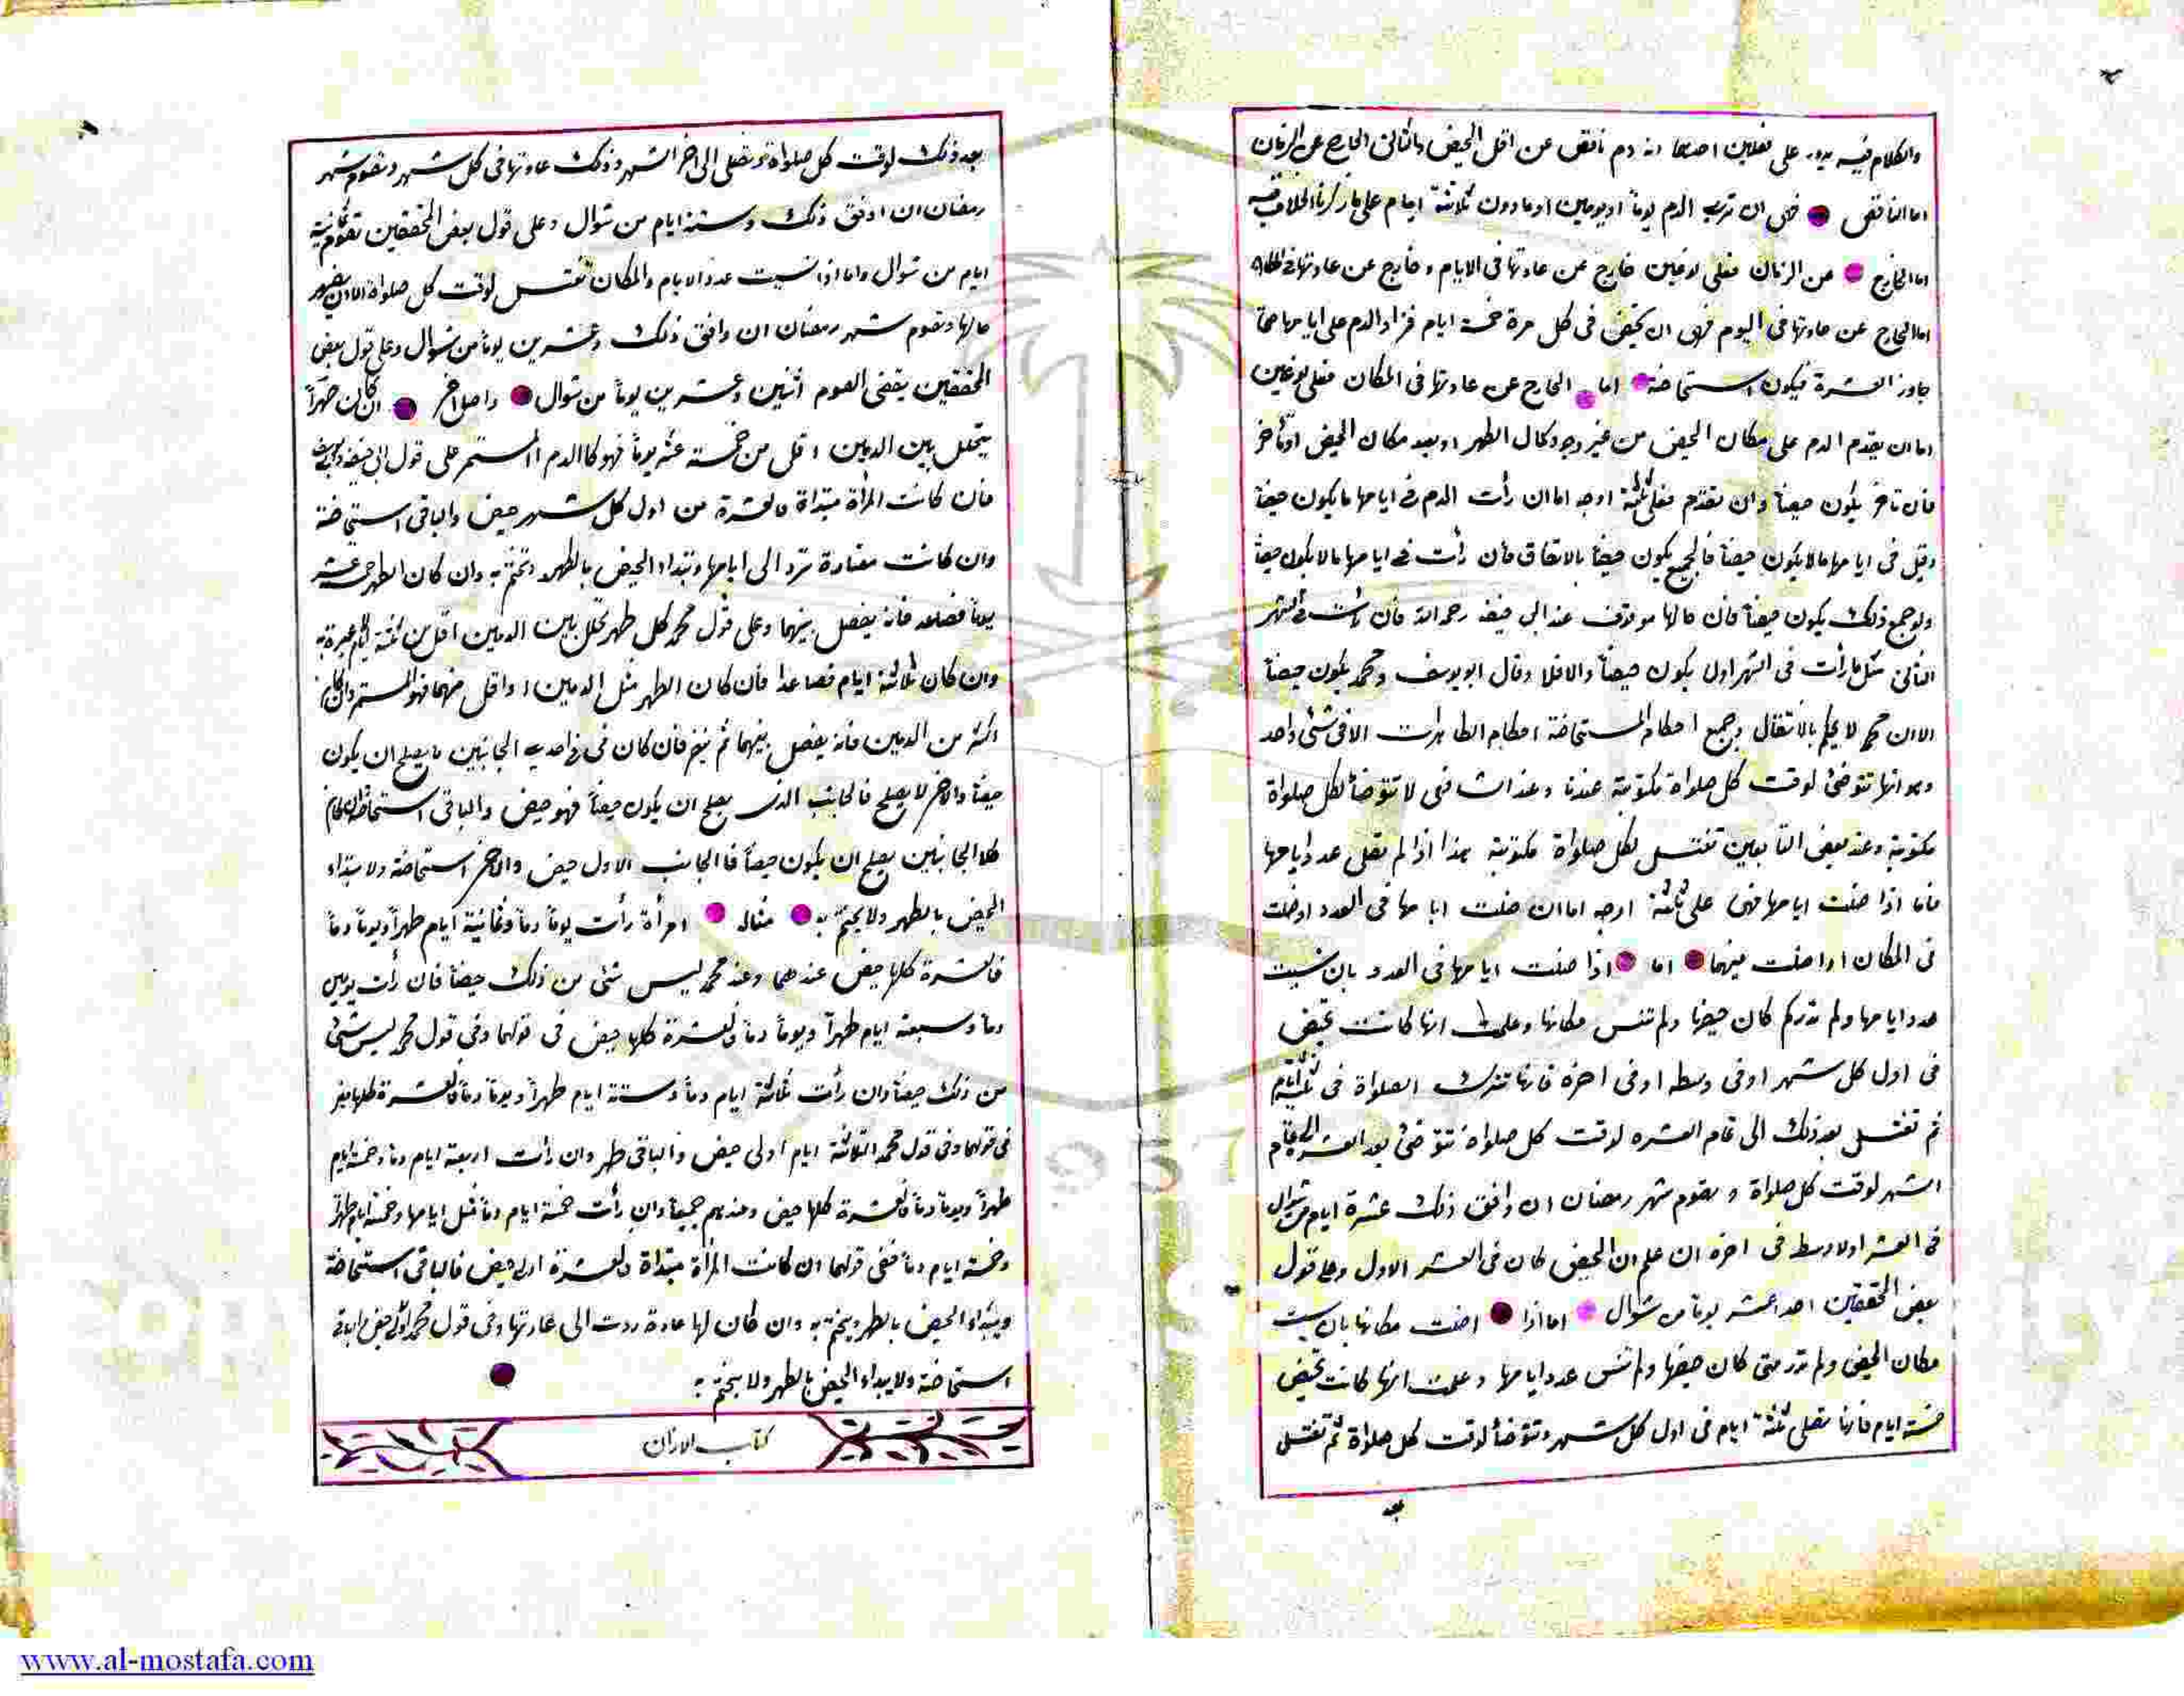 والكلام فيه يدور على فصلين احدهما انه دم ناقص عن اقل الحيض والثاني الخارج عن الزمان
اما الناقص فهي ان ترى الدم يوماً او يومين او ما دون ثلاثة ايام على ما ذكرنا الخلاف فيه
اما الخارج عن الزمان فعلى نوعين خارج عن عادتها في الايام وخارج عن عادتها في المكان
اما الخارج عن عادتها في اليوم فهي ان تحيض في كل مرة خمسة ايام فزاد الدم على ايامها حتى
جاوز العشرة فيكون استحاضة اما الخارج عن عادتها في المكان فعلى نوعين
اما ان يقدم الدم على مكان الحيض من غير وجود كمال الطهر او بعد مكان الحيض او تأخر
فان تاخر يكون حيضاً وان تقدم فعلى ثلثة اوجه اما ان رأت الدم في ايامها ما يكون حيضاً
وقبل في ايامها ما لا يكون حيضاً فالجميع يكون حيضاً بالاتفاق فان رأت في ايامها ما لا يكون حيضاً
ولو جمع ذلك يكون حيضاً فان حالها موقوف عند ابي حنيفه رحمه الله فان رأت في الشهر
الثاني مثل ما رأت في الشهر اولى يكون حيضاً والا فلا وقال ابو يوسف ومحمد يكون حيضاً
الا ان محمد لا يحكم بالانتقال وجميع احكام المستحاضة احكام الطاهرات الا في شئ واحد
وهو انها تتوضئ لوقت كل صلواة مكتوبة عندنا وعند الشافعي لا تتوضأ لكل صلواة
مكتوبة وعند بعض التابعين تغتسل لكل صلواة مكتوبة هذا اذا لم تضل عدد ايامها
فاما اذا ضلت ايامها فهي على ثلثة اوجه اما ان ضلت ايامها في العدد او ضلت
في المكان او اضلت فيهما اما اذا ضلت ايامها في العدد بان نسيت
عدد ايامها ولم تدر كم كان حيضها ولم تنس مكانها وعلمت انها كانت تحيض
في اول كل شهر او في وسطه او في اخره فانها تترك الصلواة في ثلثة ايام
ثم تغتسل بعد ذلك الى تمام العشره لوقت كل صلواة تتوضئ بعد العشرة الى تمام
الشهر لوقت كل صلواة و تصوم شهر رمضان ان وافق ذلك عشرة ايام من شوال
في العشر اولا وسط في اخره ان علم ان الحيض كان في العشر الاول وعلى قول
بعض المحققين احد عشر يوماً من شوال اما اذا اضلت مكانها بان نسيت
مكان الحيض ولم تدر متى كان حيضها ولم تنس عدد ايامها وعلمت انها كانت تحيض
خمسة ايام فانها تصلى ثلثة ايام في اول كل شهر وتتوضأ لوقت كل صلواة ثم تغتسل
بعد
بعد ذلك لوقت كل صلواة وتصلى الى اخر الشهر وذلك عادتها في كل شهر وتصوم شهر
رمضان ان اوفق ذلك وستة ايام من شوال وعلى قول بعض المحققين تصوم ثمانية
ايام من شوال واما اذا نسيت عدد الايام والمكان تغتسل لوقت كل صلواة الا ان
حالها وتصوم شهر رمضان ان وافق ذلك وعشرين يوماً من شوال وعلى قول بعض
المحققين يقضى الصوم اثنين وعشرين يوماً من شوال واصل اخر ان كان طهراً
يتخلل بين الدمين اقل من خمسة عشر يوماً فهو كالدم المستمر على قول ابي حنيفه وابي يوسف
فان كانت المرأة مبتدأة فالعشرة من اول كل شهر حيض والباقي استحاضة
وان كانت معتادة ترد الى ايامها وتبتداء الحيض بالطهر وتختم به وان كان الطهر خمسة عشر
يوماً فصاعد فانه يفصل بينهما وعلى قول محمد كل طهر تخلل بين الدمين اقل من ثلثة ايام لا عبرة به
وان كان ثلاثة ايام فصاعداً فان كان الطهر مثل الدمين او اقل منهما فهو المستمر وان كان
اكثر من الدمين فانه يفصل بينهما ثم ينظر فان كان في احدى الجانبين ما يصلح ان يكون
حيضاً والاخر لا يصلح فالجانب الذي يصلح ان يكون حيضاً فهو حيض والباقي استحاضة وان كان
كلا الجانبين يصلح ان يكون حيضاً فالجانب الاول حيض والاخر استحاضة ولا يبتداء
الحيض بالطهر ولا يختم به مثاله امرأة رأت يوماً دماً وثمانية ايام طهراً ويوماً دماً
فالعشرة كلها حيض عندهما وعند محمد ليس شئ من ذلك حيضاً فان رأت يومين
دماً وسبعة ايام طهراً ويوماً دماً فالعشرة كلها حيض في قولهما وفي قول محمد ليس شئ
من ذلك حيضاً وان رأت ثلاثة ايام دماً وستة ايام طهراً ويوماً دماً فالعشرة كلها حيض
في قولهما وفي قول محمد الثلاثة ايام اولى حيض والباقي طهر وان رأت اربعة ايام دماً وخمسة ايام
طهراً ويوماً دماً فالعشرة كلها حيض وعندهم جميعاً وان رأت خمسة ايام دماً قبل ايامها وخمسة ايام طهراً
وخمسة ايام دماً ففي قولهما ان كانت المرأة مبتدأة فالعشرة اولى حيض فالباقي استحاضة
ويبتداء الحيض بالطهر ويختم به وان كان لها عادة ردت الى عادتها وفي قول محمد الاولى حيض والباقي
استحاضة ولا يبداء الحيض بالطهر ولا يختم به
كتاب الاذان
www.al-mostafa.com